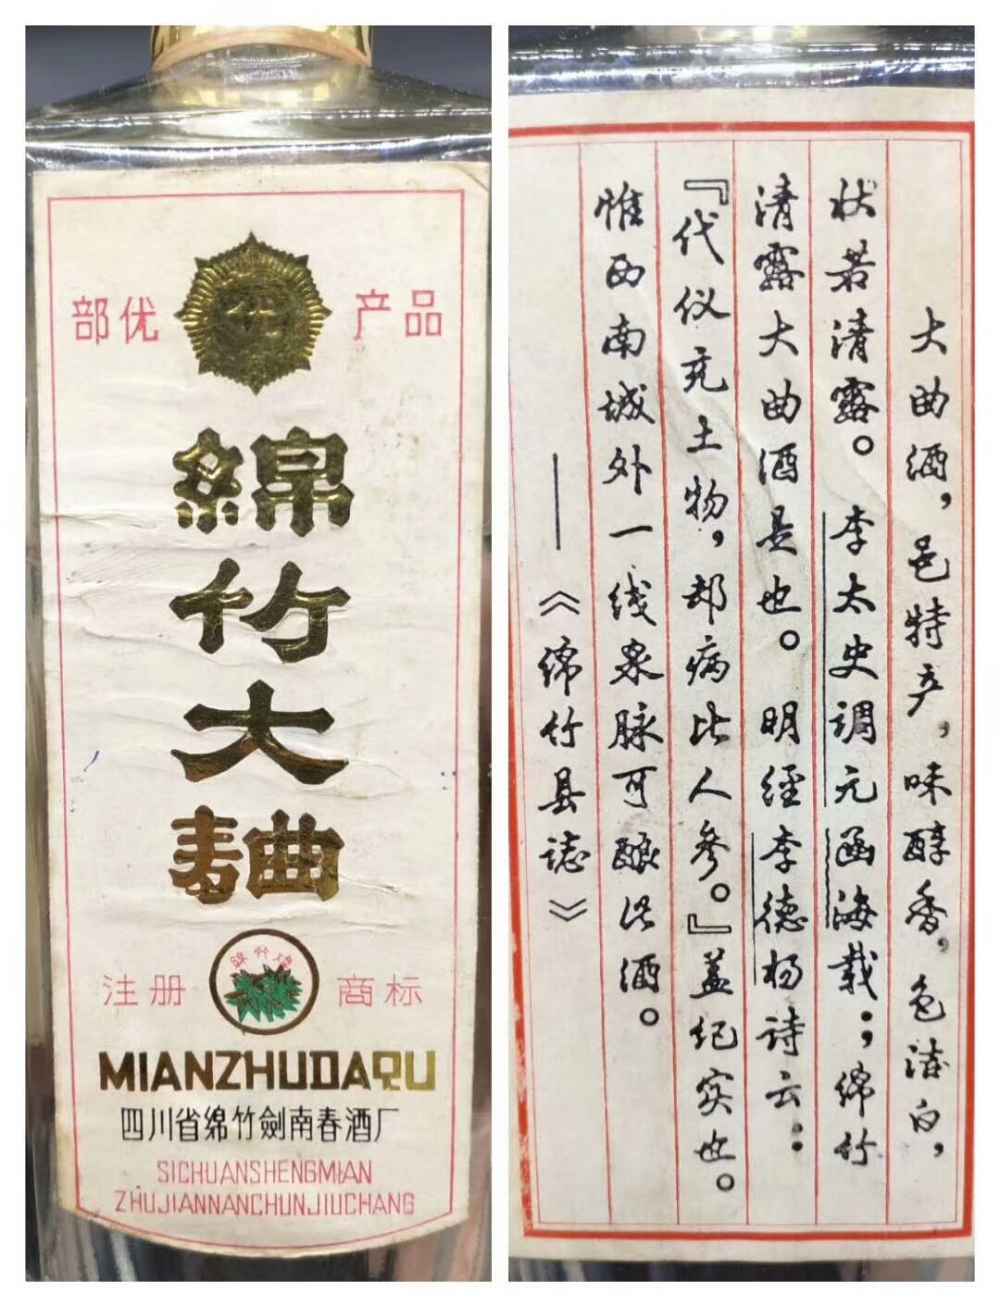 部优 产品
優
綿竹大麯
注册 商标
綿竹牌
MIANZHUDAQU
四川省绵竹劍南春酒厂
SICHUANSHENGMIAN
ZHUJIANNANCHUNJIUCHANG
大曲酒，邑特产，味醇香，色洁白，
状若清露。李太史调元函海载：，绵竹
清露大曲酒是也。明经李德杨诗云：
『代仪充土物，却病比人参。』盖纪实也。
惟西南城外一线泉脉可酿此酒。
——《绵竹县誌》